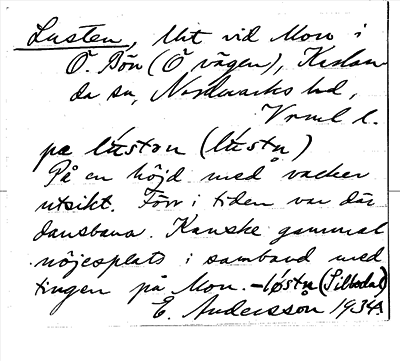 Lusten, tlt vid Mon i
Ö. Bön (Ö vägen), Karlan
da sn, Nordmarks hd,
Vrml l.
på lústɔn (lústn)
På en höjd med vacker
utsikt. Förr i tiden var där
dansbana. Kanske gammal
nöjesplats i samband med
tingen på Mon. – lǿstn (Sillbodal)
E. Andersson 1934.